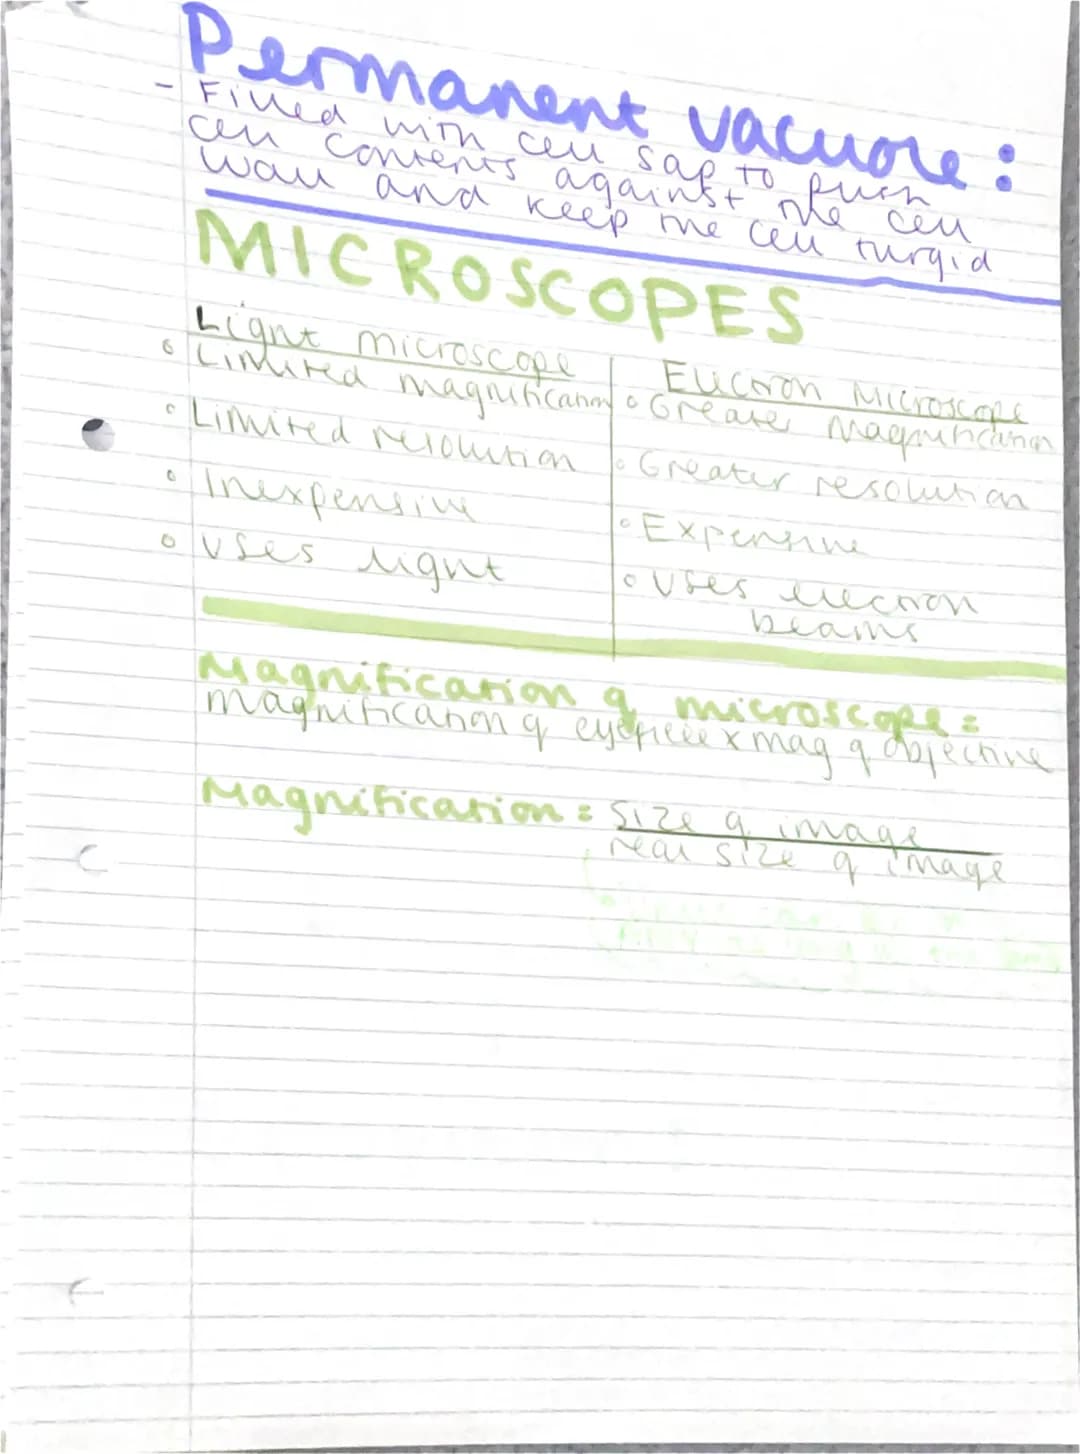 Permanent vacuole:
- Filled with cell sap to push
cell contents against the cell
wall and keep the cell turgid
MICROSCOPES
Light microscope
Electron Microscope
• Limited magnification
• Greater magnification
• Limited resolution
• Greater resolution
• Inexpensive
• Expensive
• Uses light
• Uses electron
beams
Magnification of microscope =
magnification of eyepiece x mag of objective
Magnification = size of image
real size of image